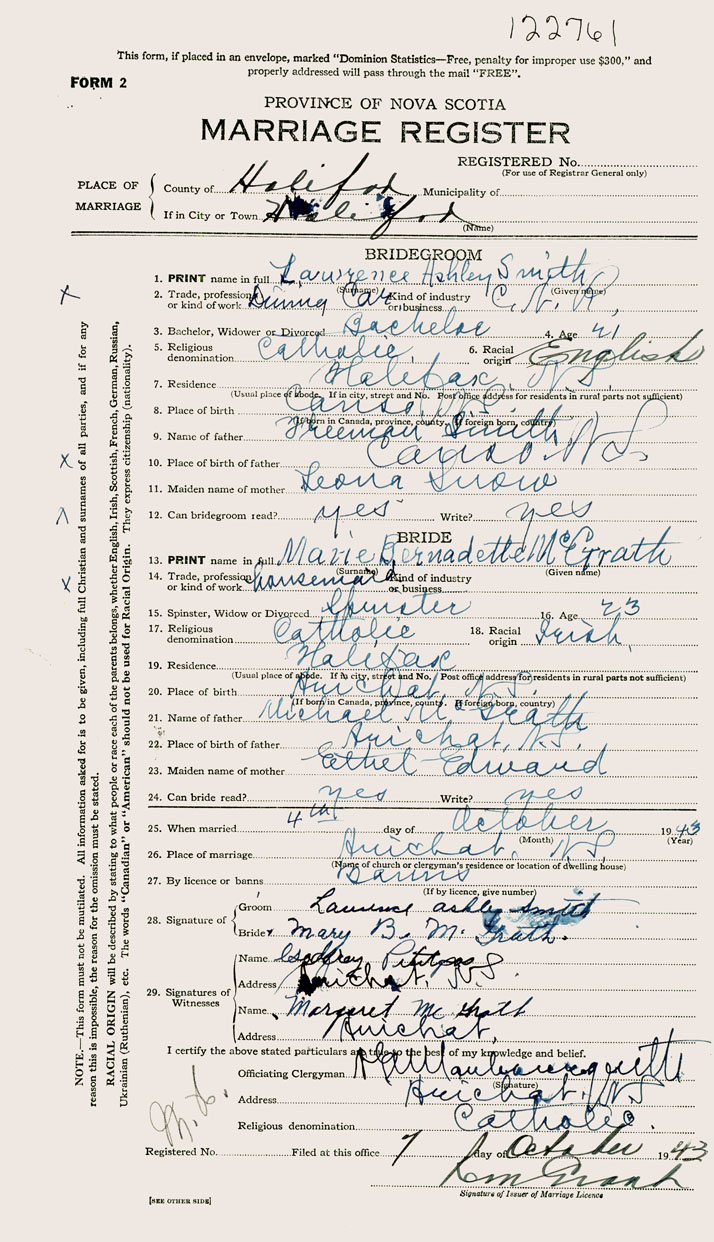 122761
This form, if placed in an envelope, marked "Dominion Statistics—Free, penalty for improper use $300," and
properly addressed will pass through the mail "FREE".
FORM 2
PROVINCE OF NOVA SCOTIA
MARRIAGE REGISTER
REGISTERED No.
(For use of Registrar General only)
PLACE OF MARRIAGE
County of Halifax Municipality of
If in City or Town Halifax
(Name)
BRIDEGROOM
1. PRINT name in full Lawrence Ashley Smith
(Surname) (Given name)
2. Trade, profession or kind of work Dining Car Kind of industry or business C. N. R.
3. Bachelor, Widower or Divorced Bachelor 4. Age 41
5. Religious denomination Catholic 6. Racial origin English
7. Residence Halifax, N.S.
(Usual place of abode. If in city, street and No. Post office address for residents in rural parts not sufficient)
8. Place of birth Canso, N.S.
(If born in Canada, province, county. If foreign born, country)
9. Name of father Freeman Smith
10. Place of birth of father Canso N.S.
11. Maiden name of mother Leona Snow
12. Can bridegroom read? yes Write? yes
BRIDE
13. PRINT name in full Marie Bernadette McGrath
(Surname) (Given name)
14. Trade, profession or kind of work housemaid Kind of industry or business
15. Spinster, Widow or Divorced Spinster 16. Age 23
17. Religious denomination Catholic 18. Racial origin Irish
19. Residence Halifax
(Usual place of abode. If in city, street and No. Post office address for residents in rural parts not sufficient)
20. Place of birth Arichat, N.S.
(If born in Canada, province, county. If foreign born, country)
21. Name of father Michael McGrath
22. Place of birth of father Arichat, N.S.
23. Maiden name of mother Ethel Edward
24. Can bride read? yes Write? yes
25. When married 4th day of October 1943
(Month) (Year)
26. Place of marriage Arichat, N.S.
(Name of church or clergyman's residence or location of dwelling house)
27. By licence or banns Banns
(If by licence, give number)
28. Signature of
Groom Laurence Ashley Smith
Bride Mary B. McGrath
29. Signatures of Witnesses
Name Godfrey
Address Arichat, N.S.
Name Margaret McGrath
Address Arichat,
I certify the above stated particulars are true to the best of my knowledge and belief.
Officiating Clergyman
(Signature)
Address Arichat, N.S.
Religious denomination Catholic.
Registered No. Filed at this office 7 day of October 1943
Grant
Signature of Issuer of Marriage Licence
[SEE OTHER SIDE]
NOTE.—This form must not be mutilated. All information asked for is to be given, including full Christian and surnames of all parties, and if for any
reason this is impossible, the reason for the omission must be stated.
RACIAL ORIGIN will be described by stating to what people or race each of the parents belongs, whether English, Irish, Scottish, French, German, Russian,
Ukrainian (Ruthenian), etc. The words "Canadian" or "American" should not be used for Racial Origin. They express citizenship (nationality).